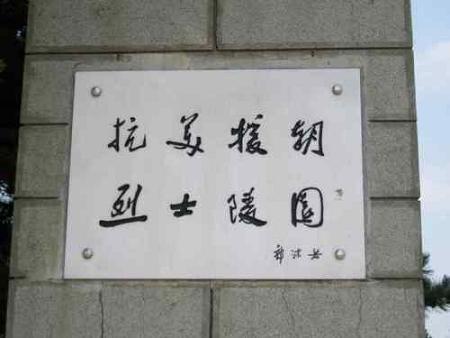 抗美援朝
烈士陵園
郭沫若